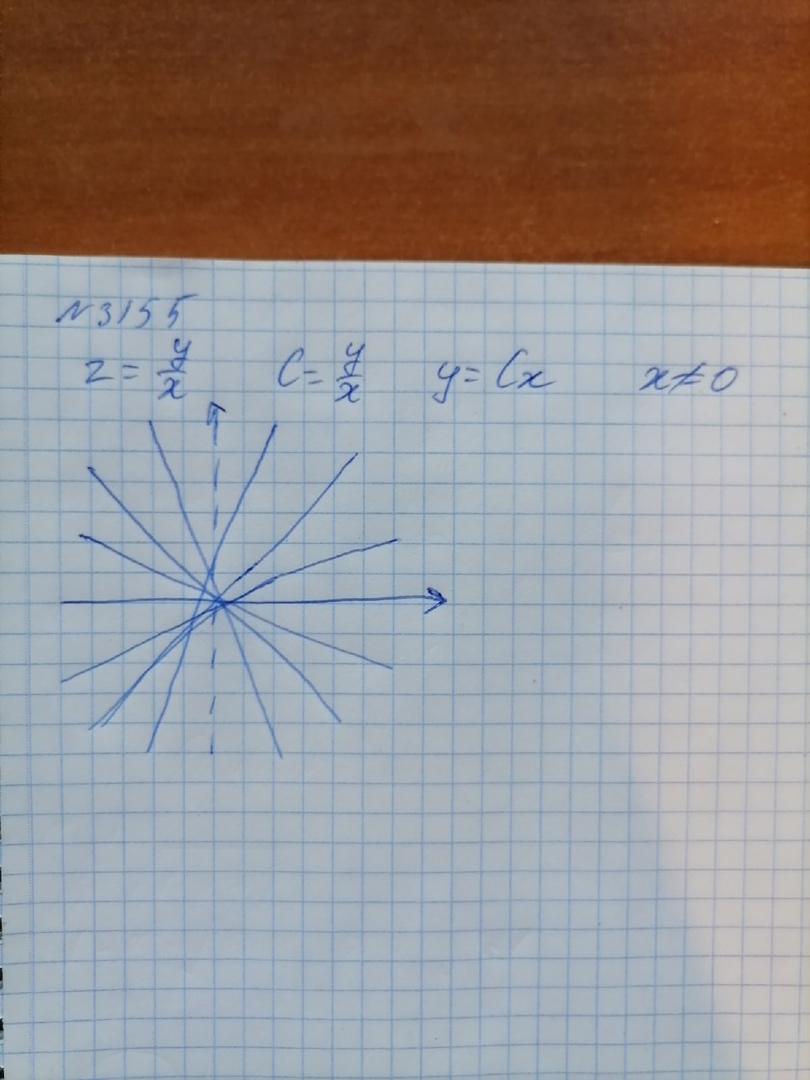 №3155
z = y/x C = y/x y = Cx x ≠ 0